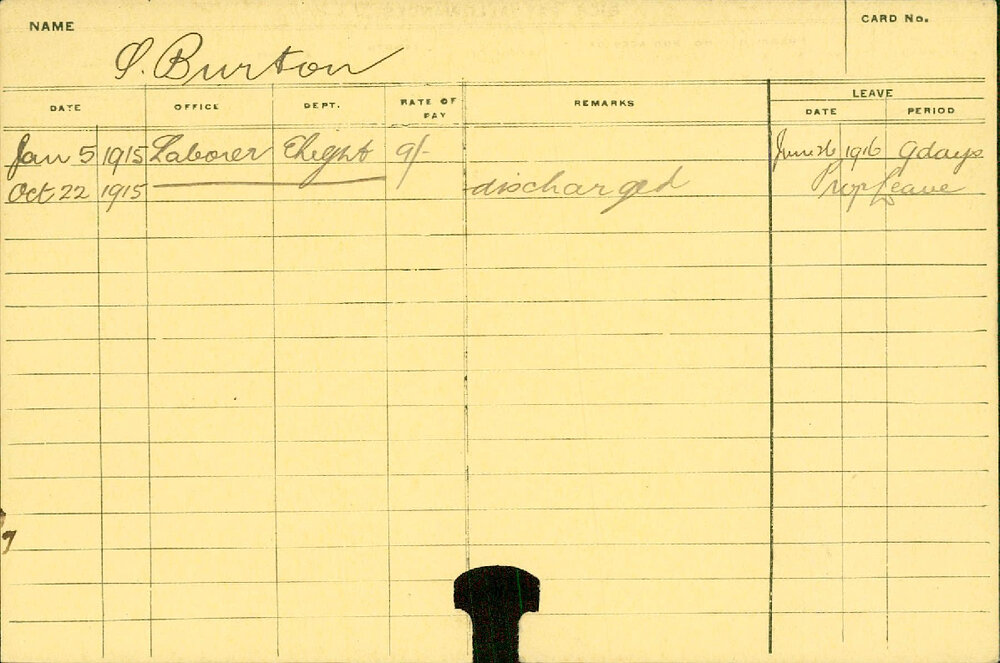 NAME
CARD No.
S. Burton
DATE OFFICE DEPT. RATE OF PAY REMARKS LEAVE
DATE PERIOD
Jan 5 1915 Laborer Elight 9/- June 26 1916 9 days
Oct 22 1915 discharged Prop Leave